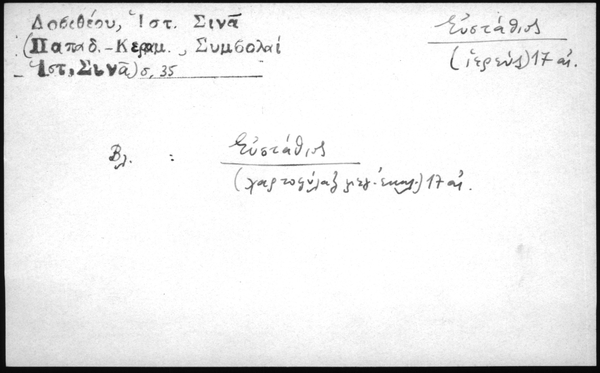 Δοσιθέου, Ἱστ. Σινᾶ
(Παπαδ.-Κεραμ., Συμβολαί
Ἱστ, Σινᾶ) σ, 35
Εὐστάθιος
(ἱερεύς) 17 αἰ.
Βλ. : Εὐστάθιος
(χαρτοφύλαξ μεγ. ἐκκλ.) 17 αἰ.